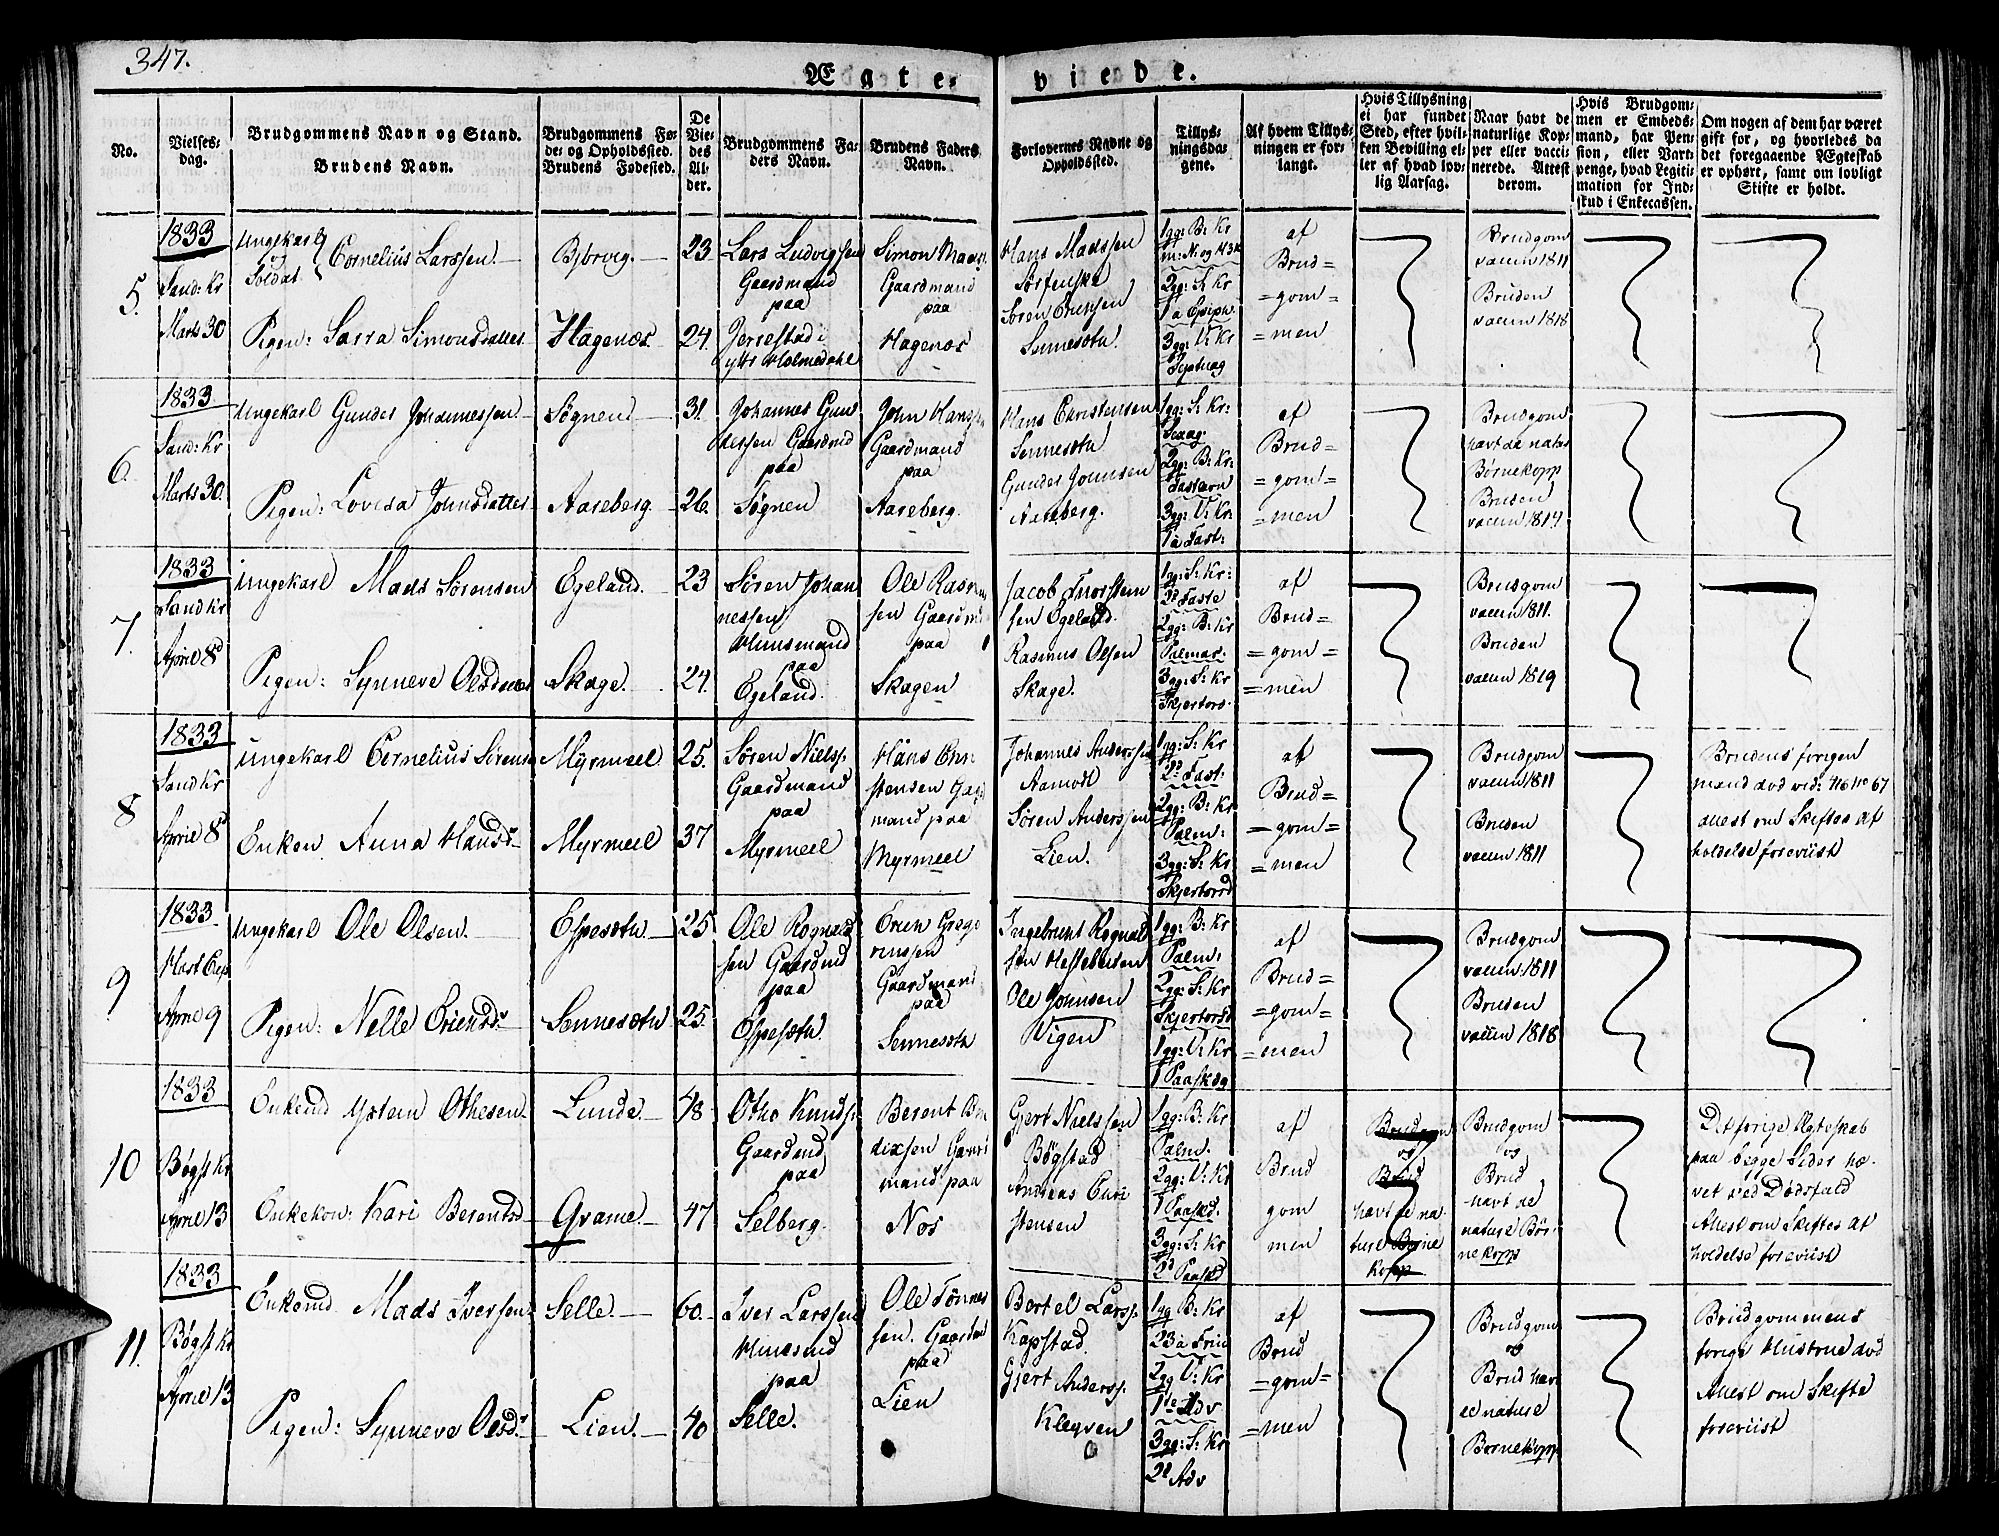 347.
Ægte- viede.
No.
Vielses-
dag.
Brudgommens Navn og Stand.
Brudens Navn.
Brudgommens Fø-
de- og Opholdssted.
Brudens Fødested.
De
Vie-
des
Al-
der.
Brudgommens Fa-
ders Navn.
Brudens Faders
Navn.
Forlovernes Navne og
Opholdssted.
Tillys-
ningsda-
gene.
Af hvem Tillys-
ningen er for-
langt.
Hvis Tillysning
ei har fundet
Sted, efter hvil-
ken Bevilling el-
ler af hvad lov-
lig Aarsag.
Naar havt de
naturlige Kop-
per eller vacci-
nerede. Attest
derom.
Hvis Brudgom-
men er Embeds-
mand, har Pen-
sion, eller Vart-
penge, hvad Legiti-
mation for Ind-
skud i Enkecassen.
Om nogen af dem har været
gift før, og hvorledes da
det foregaaende Ægteskab
er ophørt, samt om lovligt
Skifte er holdt.
5.
1833
Sand: Kr
Marts 30
Ungekarl
og
Soldat
Cornelius Larssen
Pigen: Sarra Simonsdatter
Bjørvig.
Hagenæs
23
24.
Lars Ludvigssen
Gaardmand
paa
Jerrestad i
ytre Holmedahl
Simon
Gaardmand
paa
Hagenæs
Hans Madssen
Sørfenske
Søren Ericssen
Sennesøtn.
1gg: B: Kr
2gg: S: Kr
1 a Epiph.
3gg: V: Kr
Septuag
af
Brud=
=gom=
=men
Brudgom
vaccin 1811
Bruden
vaccin 1818
6.
1833.
Sand: Kr
Marts 30.
Ungekarl Gunder Johannessen
Pigen: Lovisa Johnsdatter
Søgnen
Aaseberg.
31.
26.
Johannes Gun
dessen Gaardmd
paa
Søgnen
John Hanssen
Gaardmand
paa
Aaseberg.
Hans Christensen
Sennesøtn
Gunder Johnsen
Aaseberg.
1gg: S: Kr:
2gg: B: Kr:
Fastelavn
3gg: V: Kr:
1 a Fast:
af
Brud=
=gom=
=men
Brudgom
havt de natur
Børnekopp
Bruden
vaccin 1814
7.
1833
Sand Kr
April 8d
Ungekarl Mads Sørensen
Pigen: Synneve Olsdatter
Egeland.
Skage.
23
24.
Søren Johan
nessen
Huusmand
paa
Egeland.
Ole Rasm
sen Gaardm
paa
Skagen
Jacob Thorsten
sen Egeland.
Rasmus Olsen
Skage.
1gg: S: Kr:
2d Faste
2gg: B: Kr
Palmar.
3gg: S: Kr
Skjertors.
af
Brud=
=gom=
=men
Brudgom
vaccin 1811.
Bruden
vaccin 1819
8
1833
Sand Kr
April 8d
Ungekarl Cornelius Sørens
Enken Anna Hansd
Myrmeel
Myrmeel
25.
37
Søren Niels
Gaardmand
paa
Myrmeel
Hans Chri
stensen Gaard
mand paa
Myrmeel
Johannes Anderssen
Aamodt
Søren Anderssen
Lien.
1gg: S: Kr
2d Fast:
2gg: B: Kr
Palm:
3gg: S: Kr
Skjertorsd
af
Brud=
=gom=
=men
Brudgom
vaccin 1811
Bruden
vaccin 1811
Brudens forigen
mand død vid: No 67
attest om Skiftes af
holdelse foreviist
9.
1833.
April 9
Ungekarl Ole Olsen.
Pigen: Nelle Ericsd
Espesøtn
Sennesøtn
25
25.
Ole Rognald
sen Gaardmd
paa
Espesøtn.
Erich Grego
riussen
Gaardmand
paa
Sennesøtn
Ingebrigt Rognald
sen
Ole Johnsen
Vigen
1gg: B: Kr
Palm:
2gg: S: Kr
Skjertorsd
1gg: V: Kr
1 Paaskdg
af
Brud=
=gom=
=men
Brudgom
vaccin 1811
Bruden
vaccin 1818
10
1833
Bøgst Kr
April 13
Enkemd Ystein Othesen
Enkekon: Kari Berentsd
Lunde.
Grame.
48
47
Otho Knuds
Gaardmd
paa
Selberg.
Berent Ben
dixsen Gaard
mand paa
Nos
Gjert Nielssen
Bøgstad
Andreas Chri
stensen
1gg: B: Kr
Palm.
2gg: V: Kr
1 Paaskd.
3gg: S: Kr
2d Paaskd
af
Brud
gom
men
Brudgom
og
Brud
havt de na
turl Børne
kopp
Brudgom
og
Brud
havt de
naturl Bør
nekopp
Det forige Ægteskab
paa begge Sider hæ-
vet ved Dødsfald
Attest om Skiftes af
holdelse foreviist
11.
1833
Bøgst Kr
April 13
Enkemd Mads Iversen
Pigen: Synneve Olsd.
Selle.
Lien.
60
40
Iver Larssen
Huusmd
paa
Selle.
Ole Tønnes
sen. Gaardm
paa
Lien
Bertel Larss.
Kapstad.
Gjert Anderss.
Kleqven
1gg B: Kr
2gg V: Kr
1te Adv
3gg: S: Kr
2d Adv
af
Brud
=gom=
=men
Brudgom
og
Brud hav
de naturl
Børnekopp
Brudgommens
forige Hustrue død
Attest om Skifte
foreviist